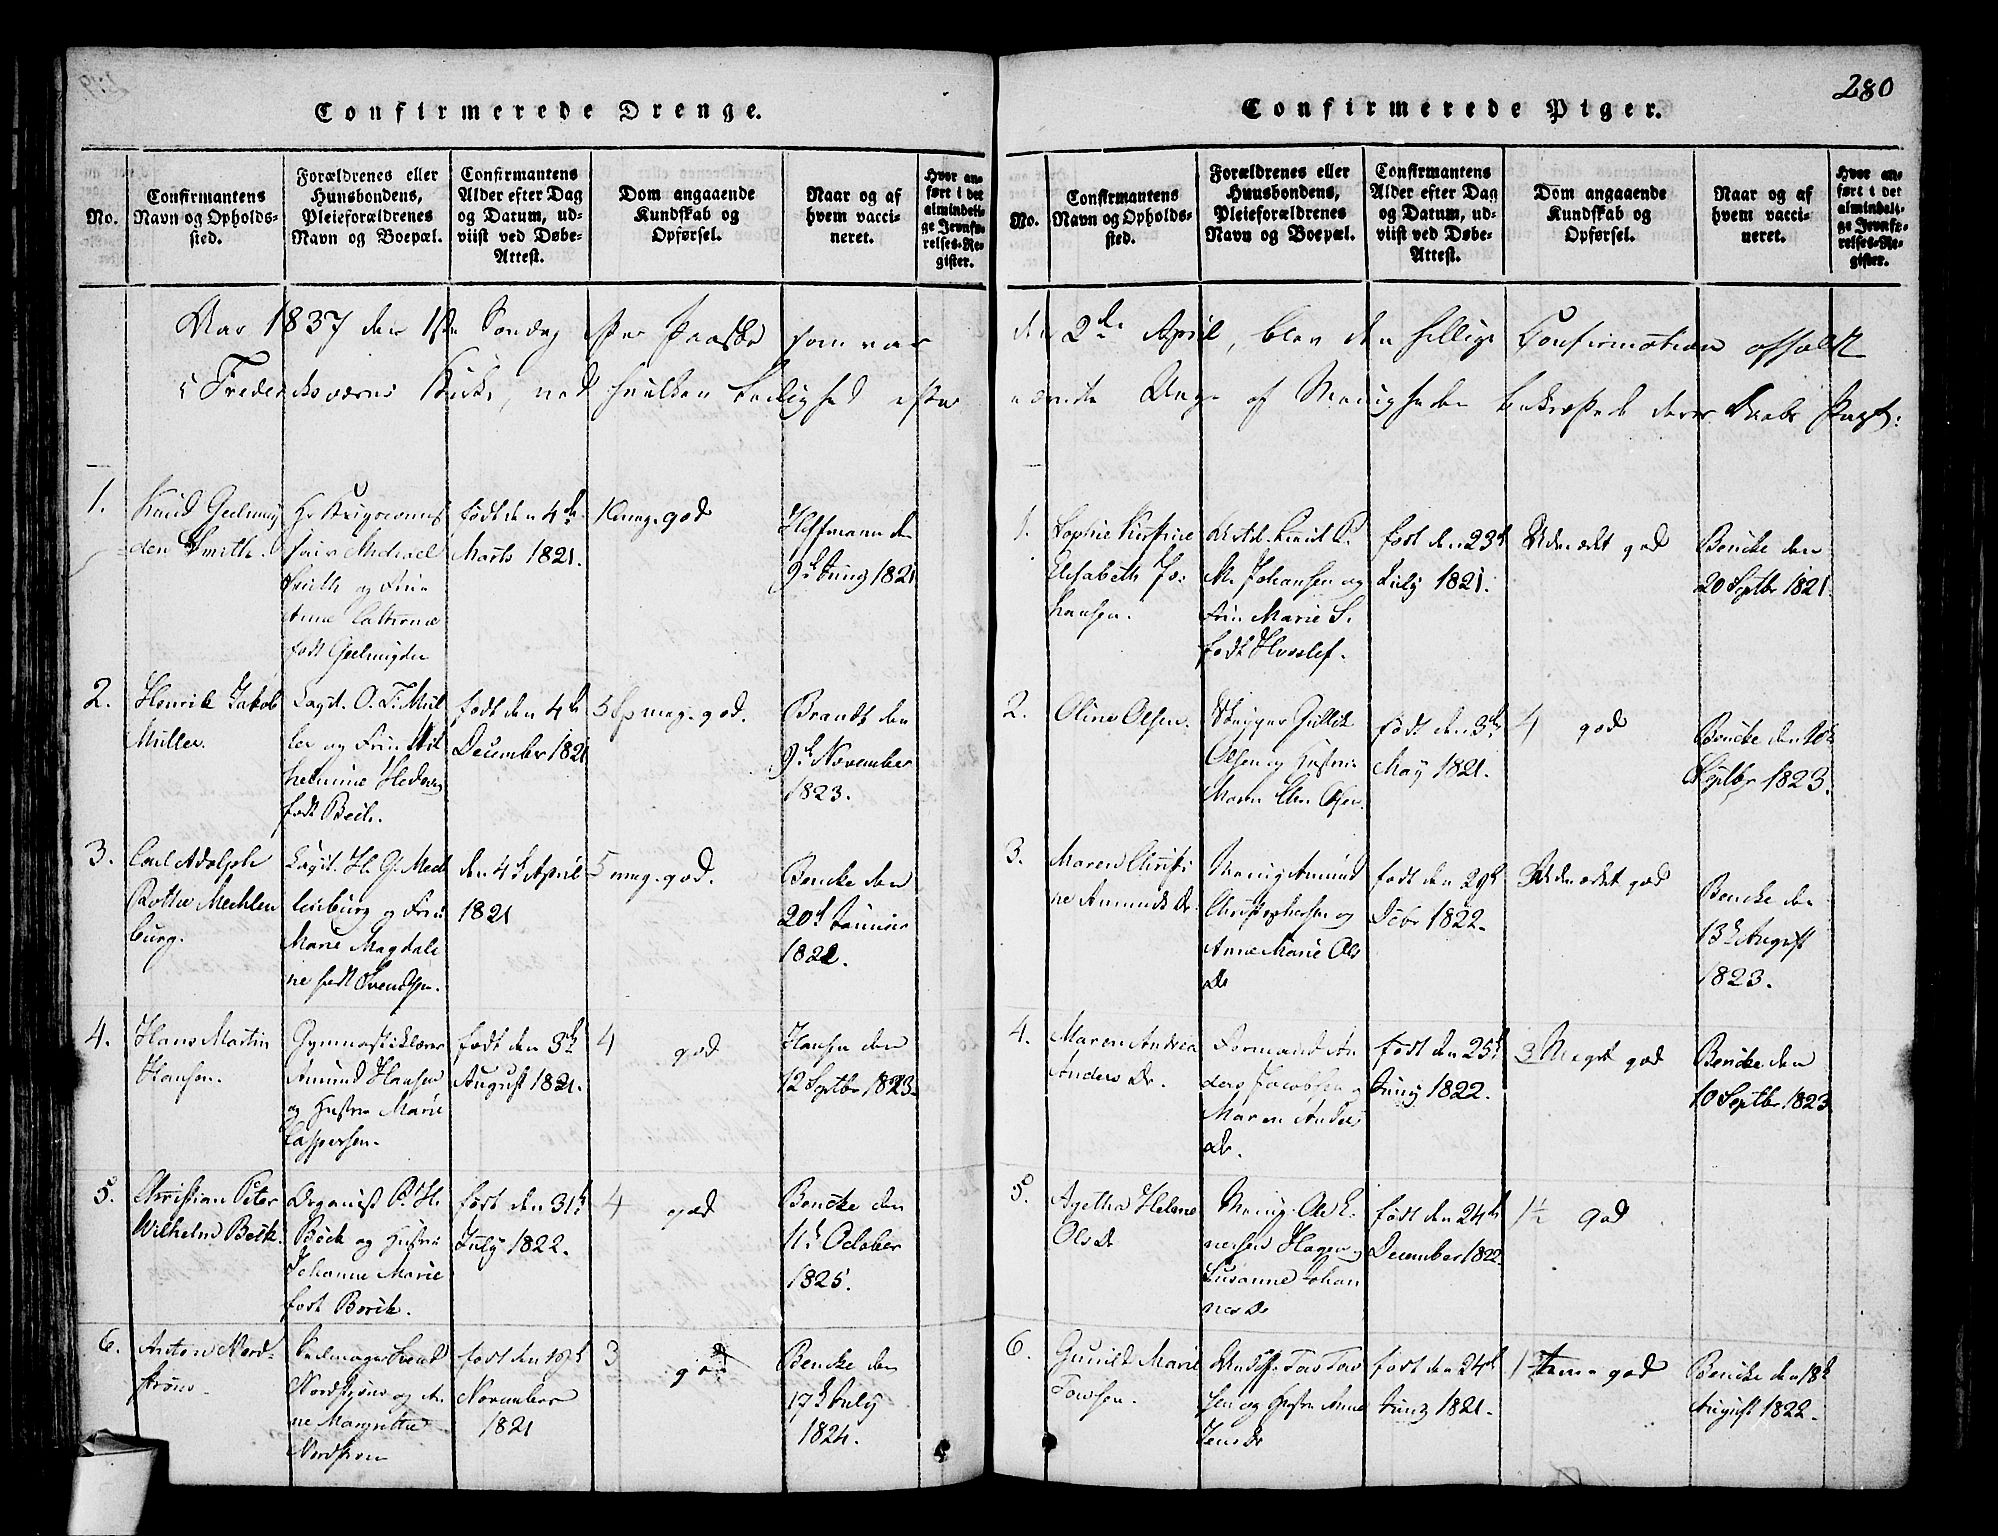 280
Confirmerede Drenge.
No.
Confirmantens
Navn og Opholds-
sted.
Forældrenes eller
Huusbondens,
Pleieforældrenes
Navn og Boepæl.
Confirmantens
Alder efter Dag
og Datum, ud-
viist ved Døbe-
Attest.
Dom angaaende
Kundskab og
Opførsel.
Naar og af
hvem vacci-
neret.
Hvor an-
ført i det
almindeli-
ge Jevnfø-
relses-Re-
gister.
Aar 1837 den 1ste Søndag efter Paaske som var
i Frederiksværns Kirke, ved hvilken Leilighed efter
1.
Knud Geelmuy
den Smith.
Michael
Smith og Frue
Anne Cathrine
født Geelmuyden
født den 4de
Marts 1821.
meg. god
Hoffmann den
9de Juny 1821
2.
Henrik Jakob
Müller.
Capt. O. F. Mül
ler og Frue Wil
helmine Hedevig
født
født den 4de
December 1821
5 meg. god.
Brandt den
9de November
1823.
3.
Carl Adolph
Rothe Mechlen
burg.
Capit. H. G. Mech
lenburg og Frue
Marie Magdale
ne født Svendsen.
den 4de April
1821
5 meg. god.
Bencke den
20de Januar
1822.
4.
Hans Martin
Hansen.
Gymnastiklærer
Amund Hansen
og Hustrue Marie
Caspersen.
født den 3de
August 1821.
4 god
Hansen den
12 Septbr 1823.
5.
Christian Peter
Wilhelm Böck.
Organist P. H.
Böck og Hustrue
Johanne Marie
født
født den 31te
July 1822.
4 god
Bencke den
11te October
1825.
6.
Anton Nord-
strøm.
Svend
Nordstrøm og An
ne Margrethe
Nordstrøm
født den
November
1821
3 god
Bencke den
17de July
1824.
Confirmerede Piger.
No.
Confirmantens
Navn og Opholds-
sted.
Forældrenes eller
Huusbondens,
Pleieforældrenes
Navn og Boepæl.
Confirmantens
Alder efter Dag
og Datum, ud-
viist ved Døbe-
Attest.
Dom angaaende
Kundskab og
Opførsel.
Naar og af
hvem vacci-
neret.
Hvor an-
ført i det
almindeli-
ge Jevnfø-
relses-Re-
gister.
den 2de April, blev den hellige Confirmation afholdt
nævnte Unge af Menigheden bekræftede deres Daabs Pagt:
1.
Sophie
Elisabeth Jo-
hansen.
Johansen og
Frue Marie S.
født
født den 23de
July 1821.
Udmærket god
Bencke den
20 Septbr 1821.
2.
Oline Olsen.
Skipper Gullik
Olsen og Hustrue
Maren Olsen
født den 3de
May 1821.
4 god
Bencke den 10de
Septbr 1823.
3.
Maren Christi
ne Amunds Dr.
Amund
Christophersen og
Anne Marie Ols
Dr
født den 29de
1822.
Udmærket god
Bencke den
13de August
1823.
4.
Maren Andrea
Anders Dr.
Formand An
ders Jacobsen og
Maren Anders
Dr.
født den 25de
Juny 1822.
3 Meget god
Bencke den
10 Septbr. 1823
5.
Agetha Helene
Ols Dr
Ole E-
nersen Hagen og
Susanne Johan
nes Dr
født den 24de
December 1822.
1½ god
6.
Gunild Marie
Towsen.
Tow Tow
sen og Hustrue Anne
Jens Dr
født den 24de
Juny 1821.
god
Bencke den 18de
August 1822.